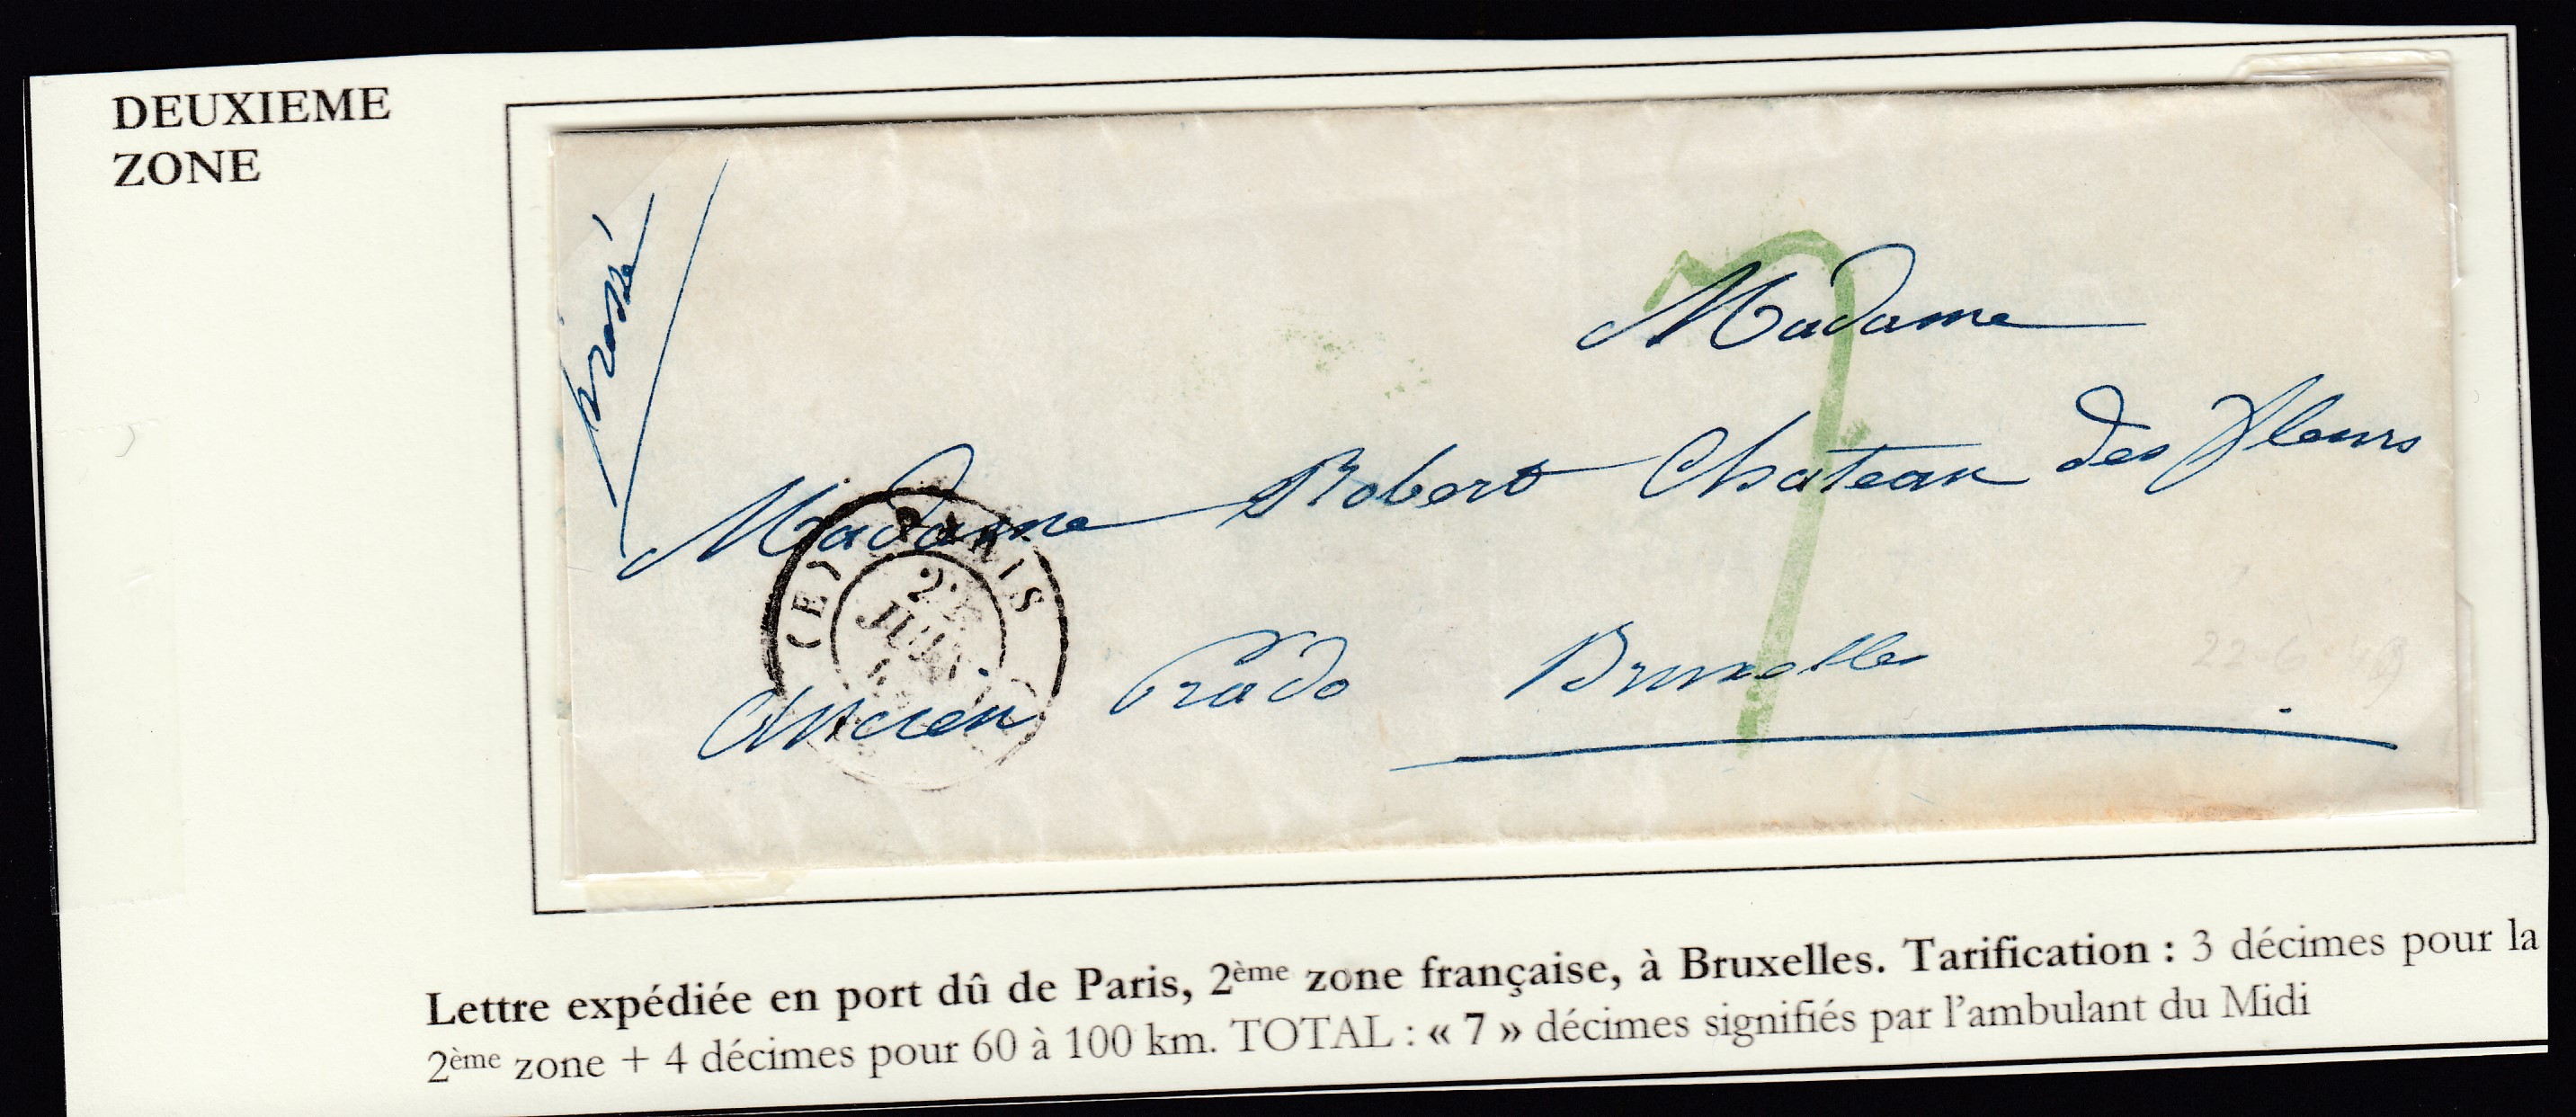 DEUXIEME
ZONE
pressé
7
Madame
Madame Robert Chateau des fleurs
Ancien Prado Bruxelle
(E) PARIS
JUIN
22
Lettre expédiée en port dû de Paris, 2ème zone française, à Bruxelles. Tarification : 3 décimes pour la
2ème zone + 4 décimes pour 60 à 100 km. TOTAL : « 7 » décimes signifiés par l'ambulant du Midi